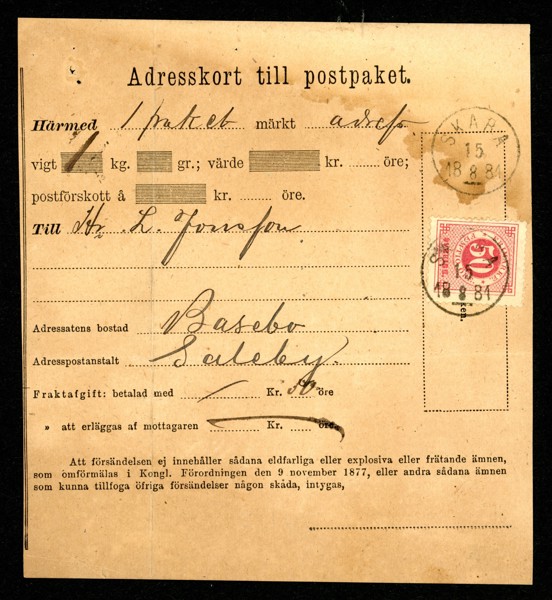 Adresskort till postpaket.
Härmed 1 paket märkt adress
vigt 1 kg. gr.; värde kr. öre;
postförskott å kr. öre.
Till Hr L. Jonsson
Adressatens bostad Basebo
Adresspostanstalt Saleby.
Fraktafgift: betalad med Kr. 50 öre
» att erläggas af mottagaren Kr. öre.
Att försändelsen ej innehåller sådana eldfarliga eller explosiva eller frätande ämnen,
som omförmälas i Kongl. Förordningen den 9 november 1877, eller andra sådana ämnen
som kunna tillfoga öfriga försändelser någon skada, intygas,
SKARA
15
18 8 81
50
SKARA
15
18 8 81
ken.